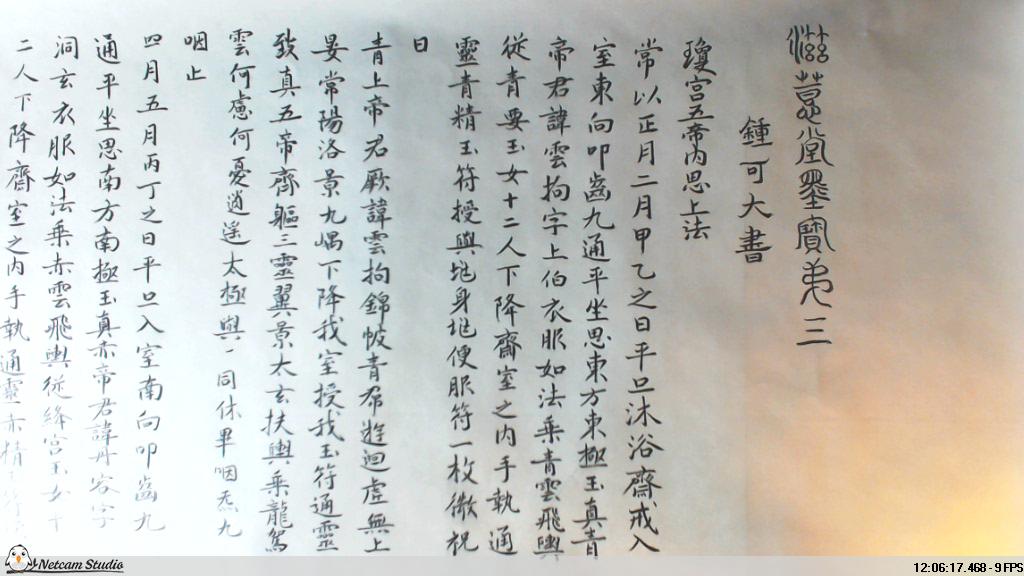 滋蕙堂墨寶弟三
鍾可大書
瓊宮五帝內思上法
常以正月二月甲乙之日平旦沐浴齋戒入
室東向叩齒九通平坐思東方東極玉真青
帝君諱雲拘字上伯衣服如法乘青雲飛輿
從青要玉女十二人下降齋室之內手執通
靈青精玉符授與地身地便服符一枚微祝
曰
青上帝君厥諱雲拘錦帔青帬遊迴虛無上
晏常陽洛景九嵎下降我室授我玉符通靈
致真五帝齊軀三靈翼景太玄扶輿乘龍駕
雲何慮何憂逍遙太極與一同休畢咽炁九
咽止
四月五月丙丁之日平旦入室南向叩齒九
通平坐思南方南極玉真赤帝君諱丹容字
洞玄衣服如法乘赤雲飛輿從絳宮玉女十
二人下降齋室之內手執通靈赤精
Netcam Studio
12:06:17.468 - 9 FPS